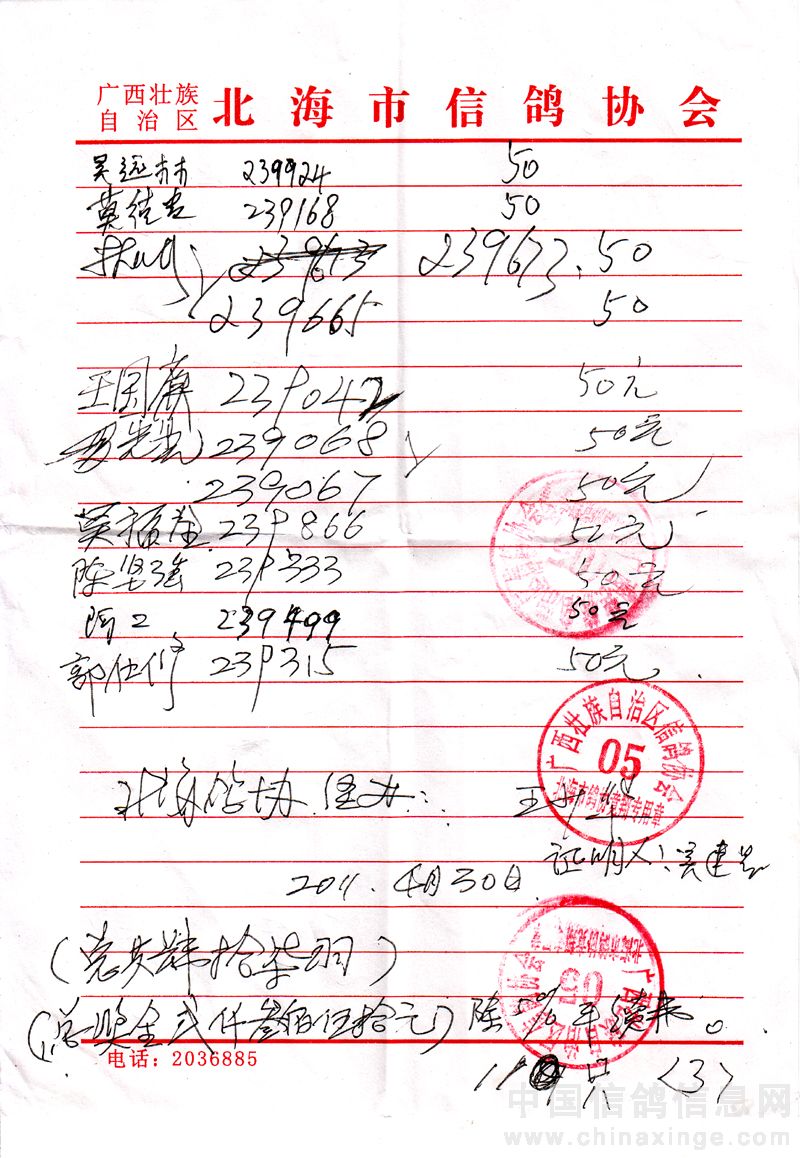 广西壮族
自治区
北海市信鸽协会
吴远林 239924 50
莫结 239168 50
239673 239673. 50
239665 50
王国 239042 50元
239068 50元
239067 50元
莫福 239866 50元
陈坚强 239333 50元
239499 50元
239315 50元
广西壮族自治区信鸽协会
05
北海市鸽 专用章
北海鸽协 经办: 王
证明人: 吴建
2011.4月30日
(总共肆拾柒羽)
(总奖金贰仟叁佰伍拾元) 除50%
电话:2036885
11 只 <3>
中国信鸽信息网
www.chinaxinge.com